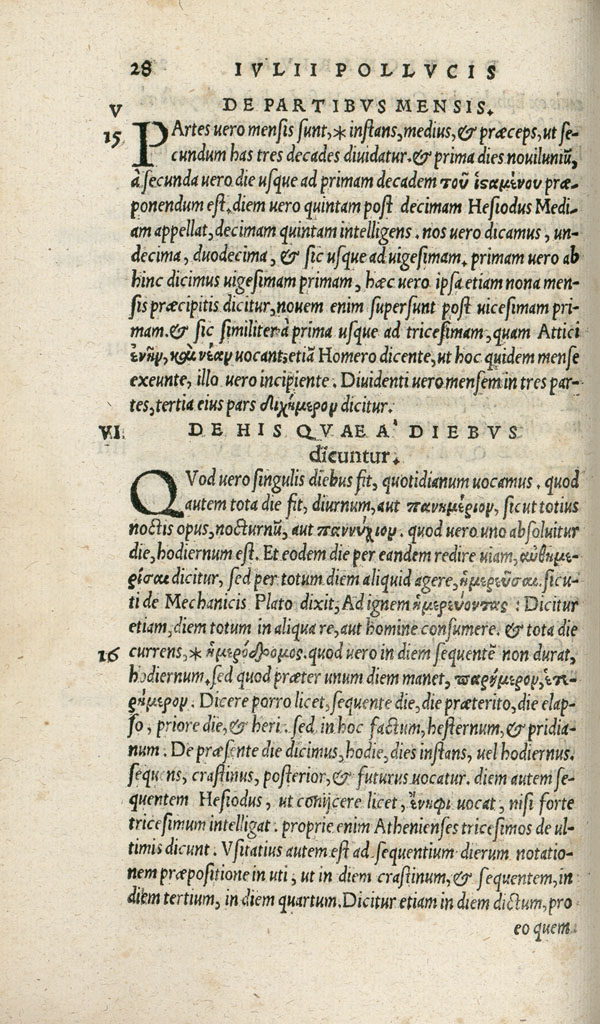 28 IVLII POLLVCIS
V DE PARTIBVS MENSIS.
15 PArtes uero mensis sunt,* instans, medius, & præceps, ut se-
cundum has tres decades diuidatur. & prima dies nouiluniũ,
à secunda uero die usque ad primam decadem τοῦ ἱσαμένου præ-
ponendum est. diem uero quintam post decimam Hesiodus Medi-
am appellat, decimam quintam intelligens. nos uero dicamus, un-
decima, duodecima, & sic usque ad uigesimam. primam uero ab
hinc dicimus uigesimam primam, hæc uero ipsa etiam nona men-
sis præcipitis dicitur, nouem enim supersunt post uicesimam pri-
mam. & sic similiter à prima usque ad tricesimam, quam Attici
ἕνην, καὶ νέαν uocant, etiã Homero dicente, ut hoc quidem mense
exeunte, illo uero incipiente. Diuidenti uero mensem in tres par-
tes, tertia eius pars διχήμερον dicitur.
VI. DE HIS QVAE A' DIEBVS
dicuntur.
QVod uero singulis diebus fit, quotidianum uocamus. quod
autem tota die fit, diurnum, aut πανημέριον, sicut totius
noctis opus, nocturnũ, aut παννύχιον. quod uero uno absoluitur
die, hodiernum est. Et eodem die per eandem redire uiam, αὐθημε-
ρίσαι dicitur, sed per totum diem aliquid agere, ἡμερεῦσαι. sicu-
ti de Mechanicis Plato dixit, Ad ignem ἡμερεύοντας: Dicitur
etiam, diem totum in aliqua re, aut homine consumere. & tota die
16 currens,* ἡμερόδρομος. quod uero in diem sequentẽ non durat,
hodiernum. sed quod præter unum diem manet, παρήμερον, ἐπι-
ρήμερον. Dicere porro licet, sequente die, die præterito, die elap-
so, priore die, & heri. sed in hoc factum, hesternum, & pridia-
num. De præsente die dicimus, hodie, dies instans, uel hodiernus.
sequens, crastinus, posterior, & futurus uocatur. diem autem se-
quentem Hesiodus, ut conijcere licet, ἔννηφι uocat, nisi forte
tricesimum intelligat. proprie enim Athenienses tricesimos de ul-
timis dicunt. Vsitatius autem est ad sequentium dierum notatio-
nem præpositione in uti, ut in diem crastinum, & sequentem, in
diem tertium, in diem quartum. Dicitur etiam in diem dictum, pro
eo quem